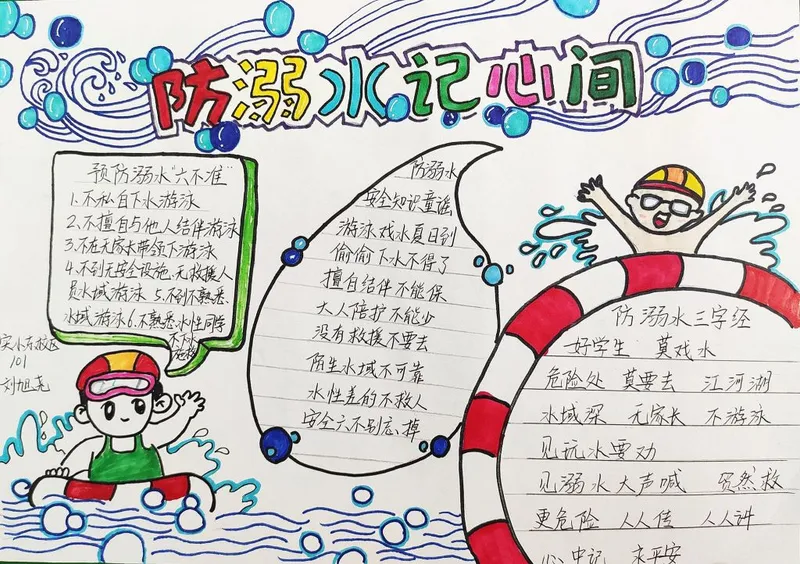 防溺水记心间
预防溺水“六不准”
1、不私自下水游泳
2、不擅自与他人结伴游泳
3、不在无家长带领下游泳
4、不到无安全设施、无救援人
员水域游泳 5、不到不熟悉、
水域游泳 6、不熟悉水性同学
不下水
施救
实小东校区
101
刘旭尧
防溺水
安全知识童谣
游泳戏水夏日到
偷偷下水不得了
擅自结伴不能保
大人陪护不能少
没有救援不要去
陌生水域不可靠
水性差的不救人
安全六不别忘掉
防溺水三字经
好学生 莫戏水
危险处 莫要去 江河湖
水域深 无家长 不游泳
见玩水要劝
见溺水大声喊 贸然救
更危险 人人传 人人讲
心中记 永平安